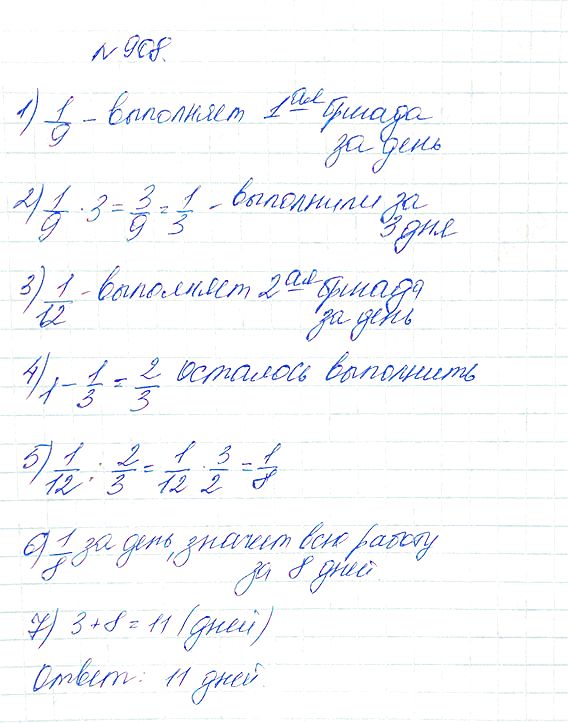 № 908.
1) 1/9 – выполняет 1ая бригада
за день
2) 1/9 · 3 = 3/9 = 1/3 – выполнили за
3 дня
3) 1/12 – выполняет 2ая бригада
за день
4) 1 – 1/3 = 2/3 осталось выполнить
5) 1/12 : 2/3 = 1/12 · 3/2 = 1/8
6) 1/8 за день, значит всю работу
за 8 дней.
7) 3 + 8 = 11 (дней)
Ответ: 11 дней